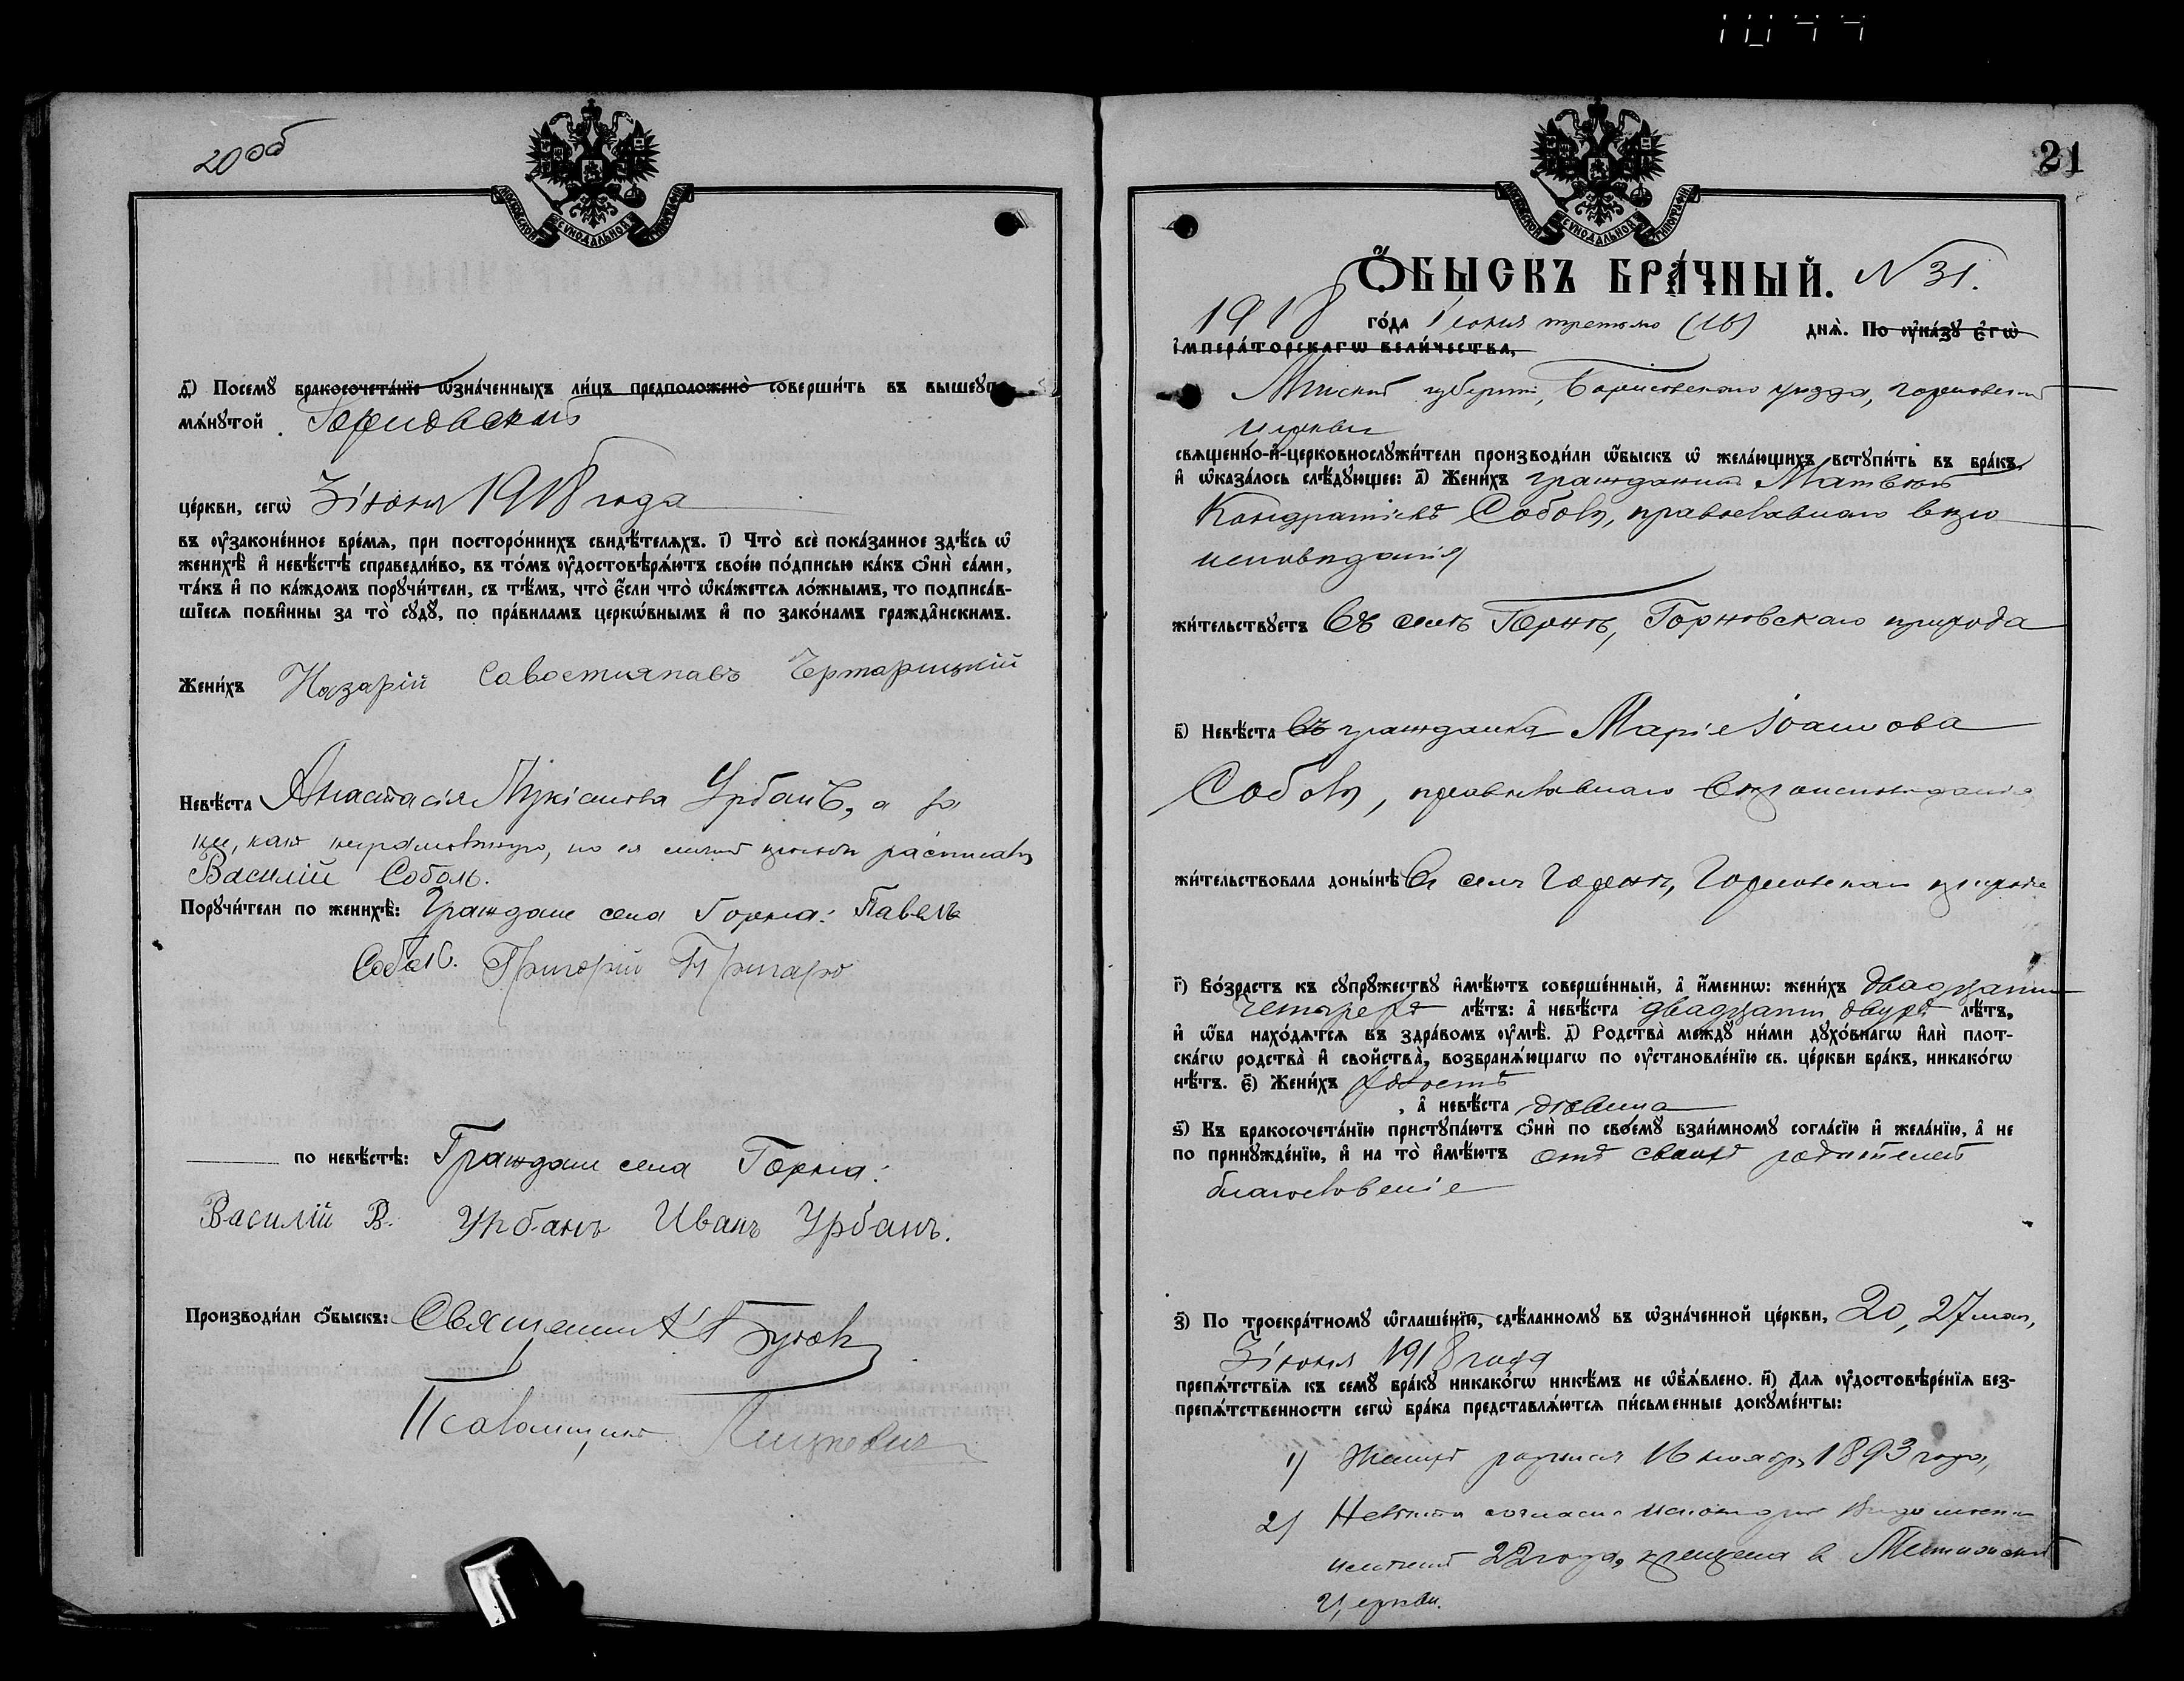 20об
МОСКОВСКОЙ СѴНОДАЛЬНОЙ ТИПОГРАФІИ
д҃) Посемꙋ бракосочета́нїе ѡ҆зна́ченныхъ ли́цъ предположено̀ соверши́ть въ вышеꙋпо-
мѧ́нꙋтой Горновской
це́ркви, сегѡ̀ 3 іюня 1918 года
въ ᲂу҆зако́нен́ное вре́мѧ, при посторо́ннихъ свидѣ́телѧхъ. і҃) Что̀ всѐ пока́занное здѣ́сь ѡ҆
женихѣ̀ и҆ невѣ́стѣ справедли́во, въ то́мъ ᲂу҆достовѣрѧ́ютъ свое́ю по́дписью ка́къ ѻ҆нѝ са́ми,
та́къ и҆ по ка́ждомъ порꙋчи́тели, съ тѣ́мъ, что̀ є҆́сли что̀ ѡ҆ка́жетсѧ ло́жнымъ, то подписа́в-
шїесѧ пови́нны за то̀ сꙋдꙋ̀, по пра́виламъ церкѡ́внымъ и҆ по зако́намъ гражда̂нскимъ.
Жени́хъ Назарій Савостияновъ Чертарицкій
Невѣ́ста Анастасія Лукіанова Урбанъ, а за
нее, какъ неграмотную, по ея личной просьбѣ расписался
Василій Соболь.
Порꙋчи́тели по женихѣ̀: Граждане села Горна: Павелъ
Соболь. Григорій
по невѣ́стѣ: Граждане села Горна:
Василій В. Урбанъ Иванъ Урбанъ.
Производи́ли ѻ҆́быскъ: Священникъ
Псаломщикъ
21
МОСКОВСКОЙ СѴНОДАЛЬНОЙ ТИПОГРАФІИ
Ѻ҆́БЫСКЪ БРА́ЧНЫЙ. N 31.
1918 го́да іюня третьяго (16) днѧ̀. По ᲂу҆ка́зꙋ є҆гѡ̀
і҆мпера́торскагѡ вели́чества,
Минской губерніи, Борисовскаго уезда, Горновской
церкви
свѧще́нно-и҆-церковнослꙋжи́тели производи́ли ѡ҆́быскъ ѡ҆ жела́ющихъ встꙋпи́ть въ бра́къ,
и҆ ѡ҆каза́лось слѣ́дꙋющее: а҃) Жени́хъ гражданинъ Матвей
Кондратіевъ Соболь, православнаго веро
исповеданія
жи́тельствꙋетъ въ селе Горне, Горновскаго прихода
в҃) Невѣ́ста въ гражданка Марія Іоаннова
Соболь, православнаго вероисповеданія
жи́тельствовала доны́нѣ въ селе Горне, Горновскаго прихода
г҃) Во́зрастъ къ сꙋпрꙋ́жествꙋ и҆мѣ́ютъ соверше́нный, а҆ и҆́меннѡ: жени́хъ двадцати
четырехъ лѣ́тъ: а҆ невѣ́ста двадцати двухъ лѣ́тъ,
и҆ ѻ҆́ба нахо́дѧтсѧ въ здра́вомъ ᲂу҆мѣ̀. д҃) Родства̀ междꙋ̀ ни́ми дꙋхо́внагѡ и҆лѝ плот-
ска́гѡ родства̀ и҆ свойства̀, возбранѧ́ющагѡ по ᲂу҆становле́нїю св. це́ркви бра́къ, никако́гѡ
нѣ́тъ. є҃) Жени́хъ холостъ
, а҆ невѣ́ста девица
ѕ҃) Къ бракосочета́нїю пристꙋпа́ютъ ѻ҆нѝ по своемꙋ̀ взаи́мномꙋ согла́сїю и҆ жела́нїю, а҆ не
по принꙋжде́нїю, и҆ на то̀ и҆мѣ́ютъ отъ своихъ родителей
благословеніе
з҃) По троекра́тномꙋ ѡ҆глаше́нїю, сдѣ́ланномꙋ въ ѡ҆зна́ченной це́ркви, 20, 27 мая,
3 іюня 1918 года
препѧ́тствїѧ къ семꙋ̀ бра́кꙋ никако́гѡ никѣ́мъ не ѡ҆б̾ѧ́влено. и҃) Длѧ ᲂу҆достовѣре́нїѧ без-
препѧ́тственности сегѡ̀ бра́ка представлѧ́ютсѧ пи́сьменные докꙋме́нты:
1) Женихъ родился 16 ноября 1893 года,
2) Невеста согласно
22 года, крещена в
церкви.